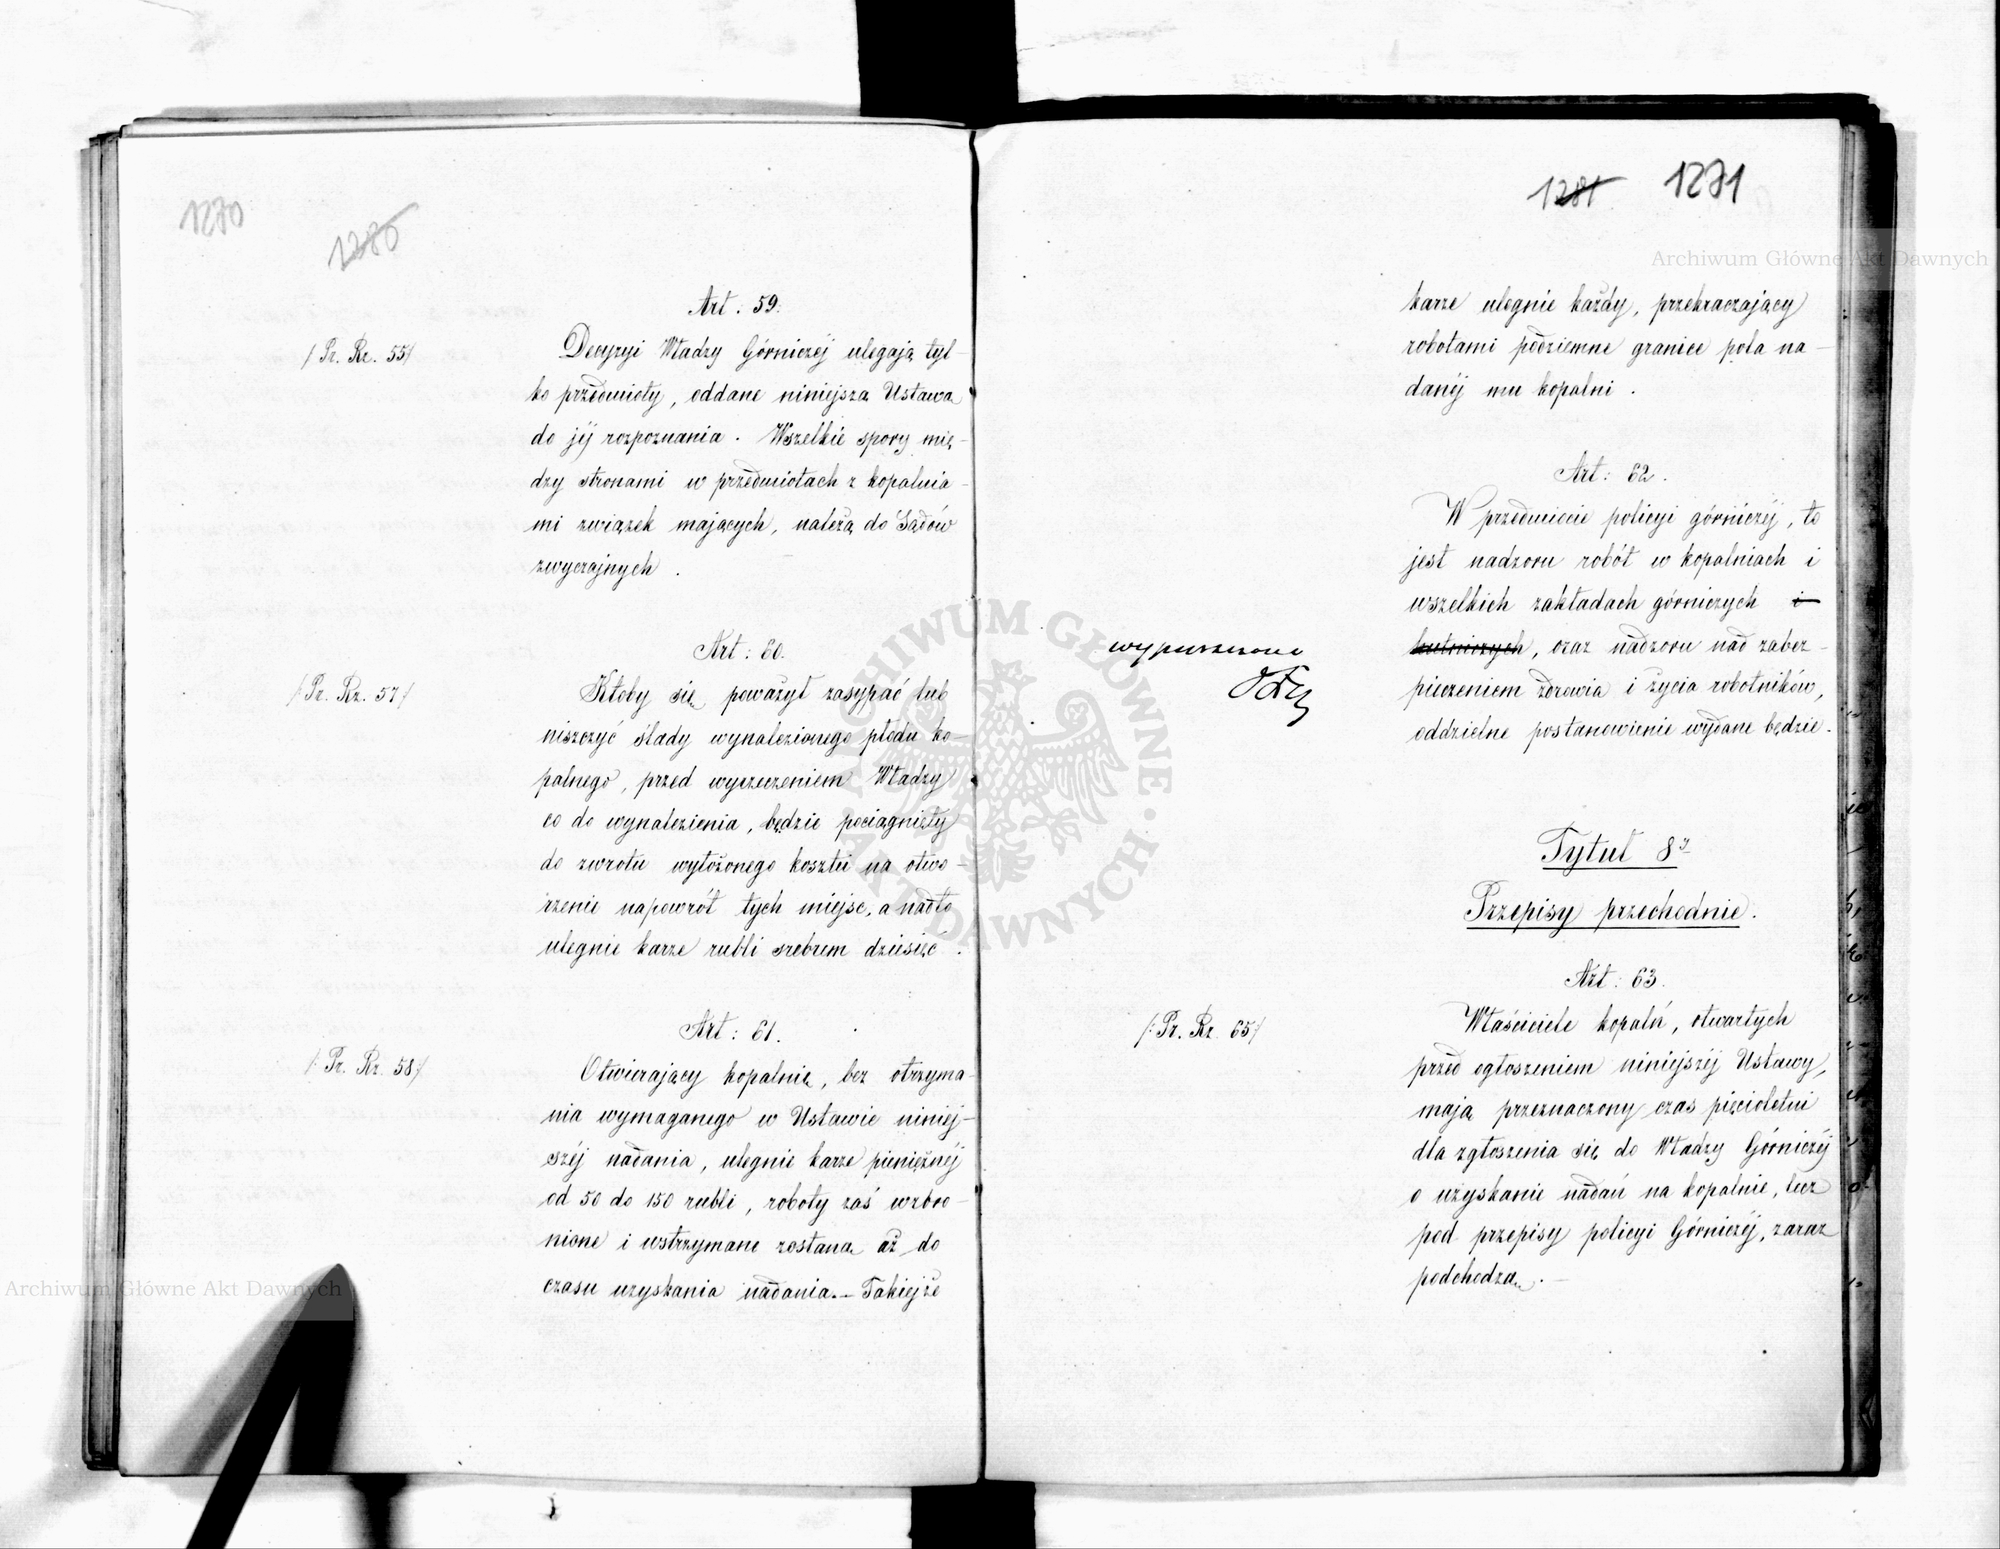 1270
1280
Art: 59.
/: Pr. Rz. 55 :/
Decyzyi Władzy Górniczéj ulegają tyl-
ko przedmioty, oddane niniejszą Ustawą
do jéj rozpoznania. Wszelkie spory mię-
dzy stronami w przedmiotach z kopalnia-
mi związek mających, należą do Sądów
zwyczajnych.
Art: 60.
/: Pr. Rz. 57 :/
Ktoby się poważył zasypać lub
niszczyć ślady wynalezionego płodu ko-
palnego, przed wyrzeczeniem Władzy
co do wynalezienia, będzie pociągnięty
do zwrotu wyłożonego kosztu na otwo-
rzenie napowrót tych miejsc, a nadto
ulegnie karze rubli srebrem dziesięć.
Art: 61.
/: Pr. Rz. 58 :/
Otwierający kopalnię, bez otrzyma-
nia wymaganego w Ustawie niniej-
széj nadania, ulegnie karze pieniężnéj
od 50 do 150 rubli, roboty zaś wzbro-
nione i wstrzymane zostaną aż do
czasu uzyskania nadania.- Takiejże
1281 1271
karze ulegnie każdy, przekraczający
robotami podziemne granice pola na-
danéj mu kopalni.
Art: 62.
W przedmiocie policyi górniczéj, to
jest nadzoru robót w kopalniach i
wszelkich zakładach górniczych i
hutniczych, oraz nadzoru nad zabez-
pieczeniem zdrowia i życia robotników,
oddzielne postanowienie wydane będzie.
wypuszczono
Tytuł 8y
Przepisy przechodnie.
Art: 63.
/: Pr. Rz. 65 :/
Właściciele kopalń, otwartych
przed ogłoszeniem niniejszéj Ustawy,
mają przeznaczony czas pięcioletni
dla zgłoszenia się do Władzy Górniczéj
o uzyskanie nadań na kopalnie, lecz
pod przepisy policyi Górniczéj, zaraz
podchodzą.-
Archiwum Główne Akt Dawnych
Archiwum Główne Akt Dawnych
ARCHIWUM GŁÓWNE AKT DAWNYCH